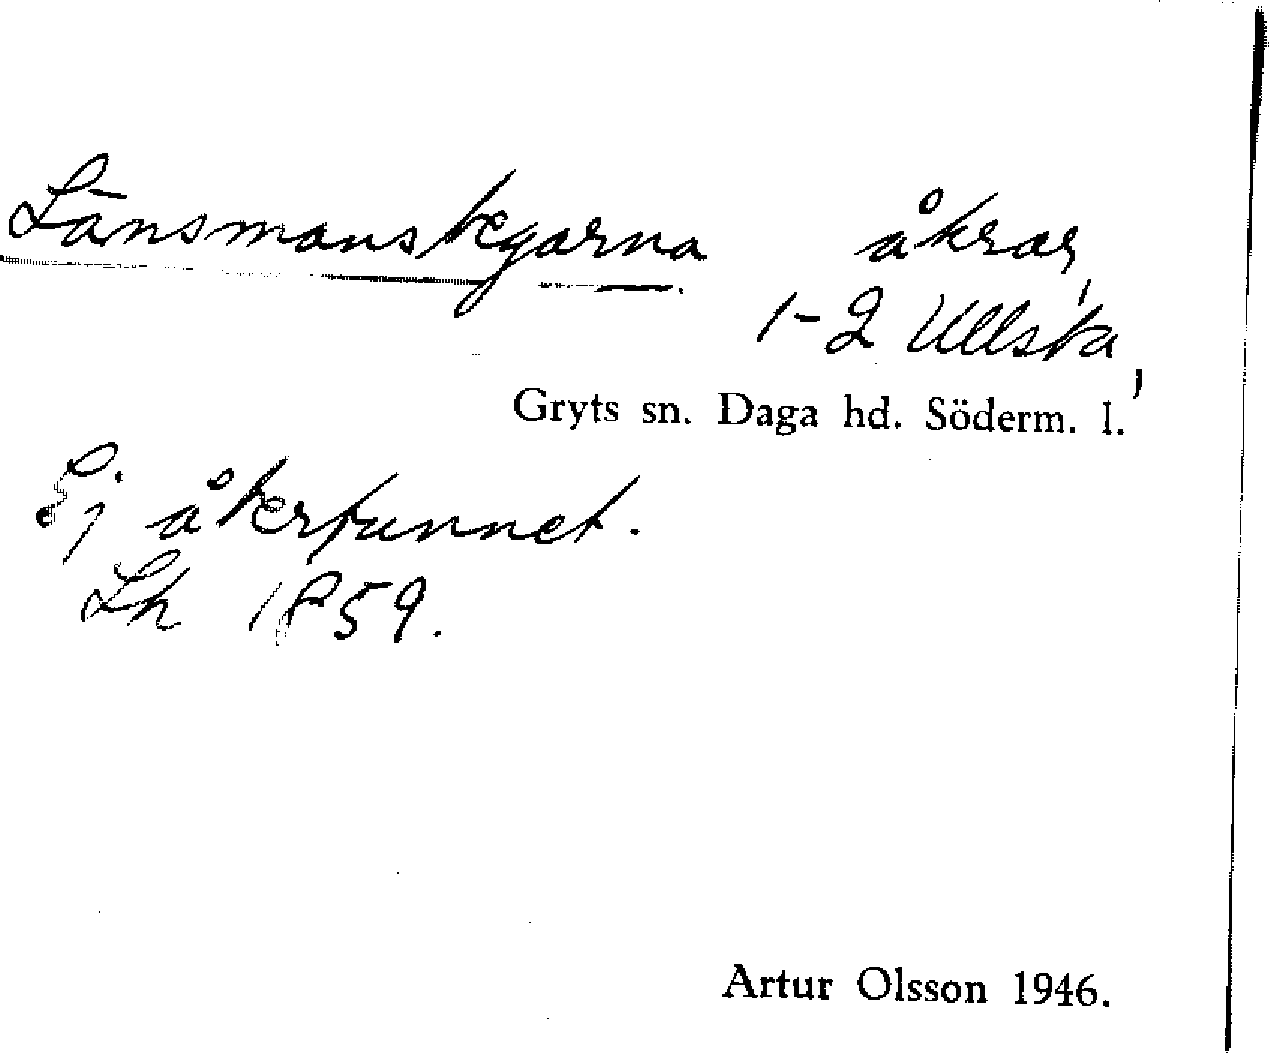 Länsmanstegarna åkrar,
1-2 Ullsta,
Gryts sn. Daga hd. Söderm. l.
Ej återfunnet.
Lh 1859.
Artur Olsson 1946.